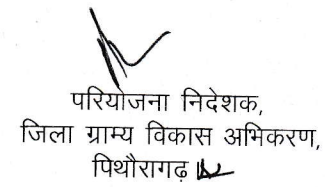 परियोजना निदेशक,
जिला ग्राम्य विकास अभिकरण,
पिथौरागढ़